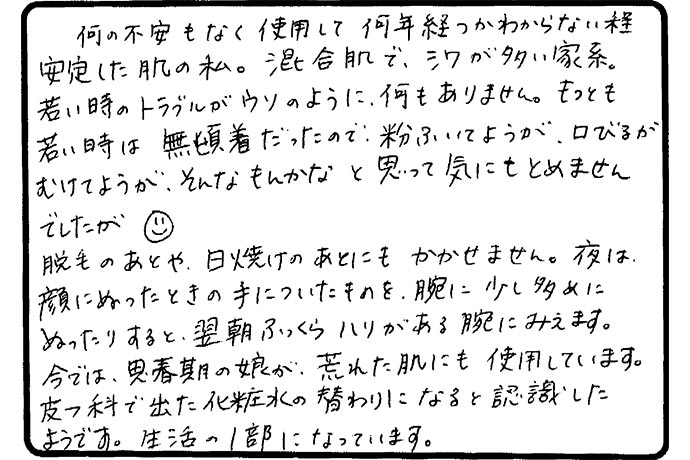 何の不安もなく使用して何年経つかわからない程
安定した肌の私。混合肌で、シワが多い家系。
若い時のトラブルがウソのように、何もありません。もっとも
若い時は無頓着だったので、粉ふいてようが、口びるが
むけてようが、そんなもんかなと思って気にもとめません
でしたが
脱毛のあとや、日焼けのあとにもかかせません。夜は、
顔にぬったときの手についたものを、腕に少し多めに
ぬったりすると、翌朝ふっくらハリがある腕にみえます。
今では、思春期の娘が、荒れた肌にも使用しています。
皮フ科で出た化粧水の替わりになると認識した
ようです。生活の1部になっています。